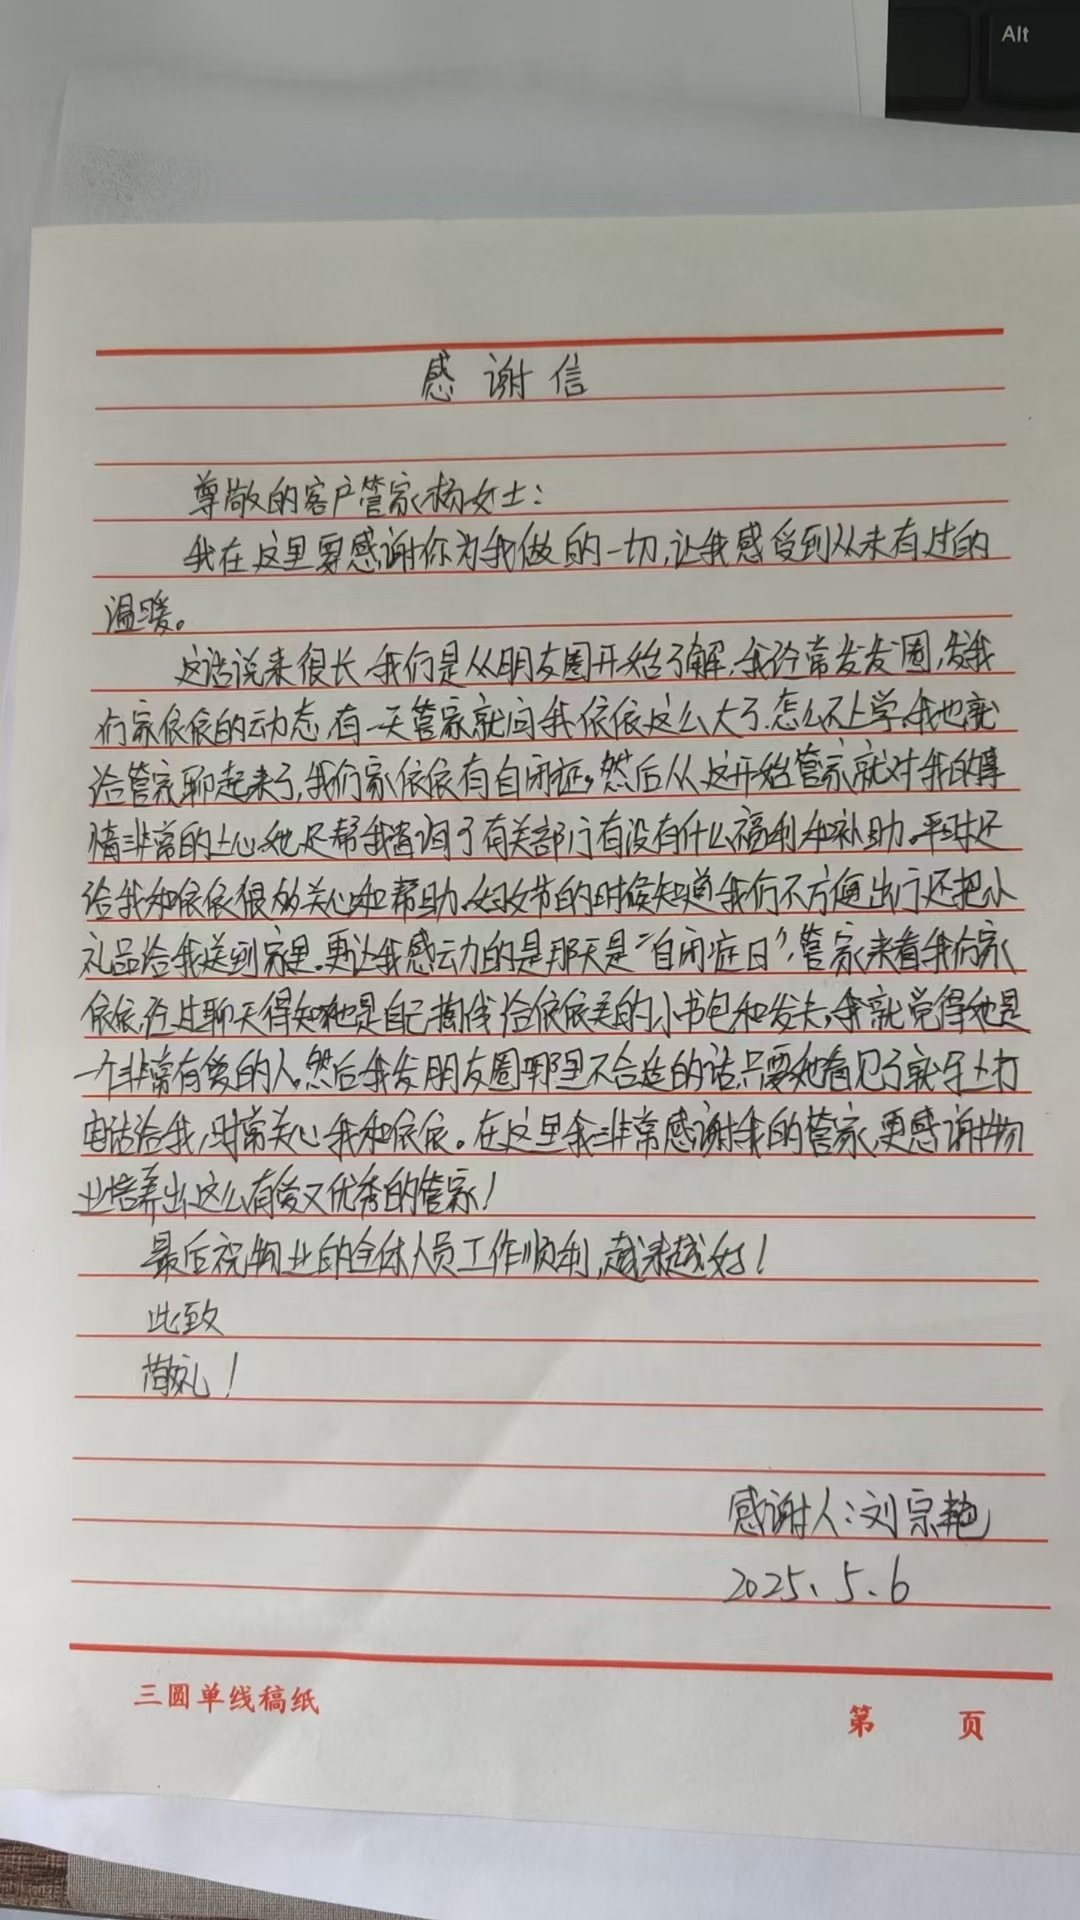 Alt
感谢信
尊敬的客户管家杨女士：
我在这里要感谢你为我做的一切，让我感受到从未有过的
温暖。
这话说来很长，我们是从朋友圈开始了解，我经常发发圈，发我
们家依依的动态，有一天管家就问我依依这么大了，怎么不上学，我也就
给管家聊起来了，我们家依依有自闭症。然后从这开始管家就对我的事
情非常的上心，她还帮我咨询了有关部门有没有什么福利和补助。平时还
给我和依依很多关心和帮助。妇女节的时候知道我们不方便出门还把小
礼品给我送到家里。更让我感动的是那天是“自闭症日”，管家来看我们家
依依，经过聊天得知她是自己掏钱给依依买的小书包和发夹，我就觉得她是
一个非常有爱的人。然后我发朋友圈哪里不合适的话，只要她看见了就马上打
电话给我，时常关心我和依依。在这里我非常感谢我的管家，更感谢物
业培养出这么有爱又优秀的管家！
最后祝物业的全体人员工作顺利，越来越好！
此致
敬礼！
感谢人：刘宗艳
2025、5、6
三圆单线稿纸
第 页